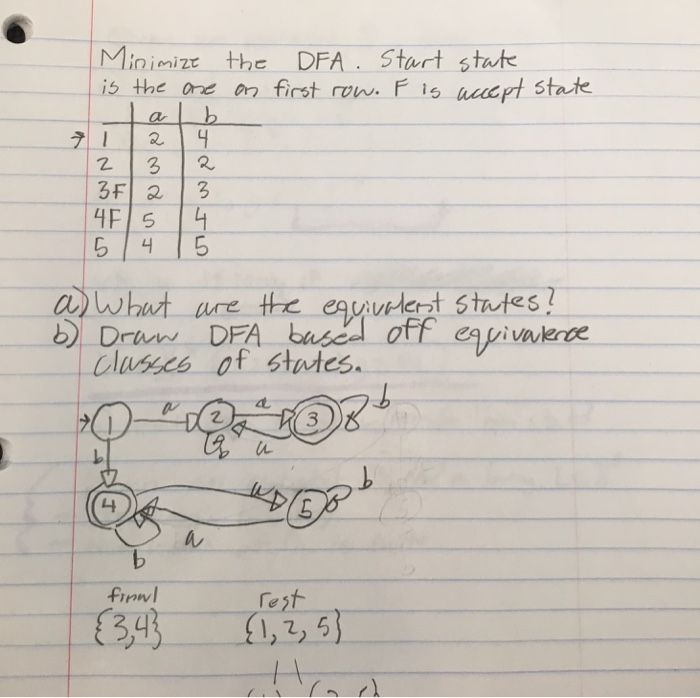 Minimize the DFA. Start state
is the one on first row. F is accept state
a b
→ 1 2 4
2 3 2
3F 2 3
4F 5 4
5 4 5
a) What are the equivalent states?
b) Draw DFA based off equivalence
classes of states.
1 a 2 a 3 b
b b a
4 a 5 b
b a
final rest
{3,4} {1,2,5}